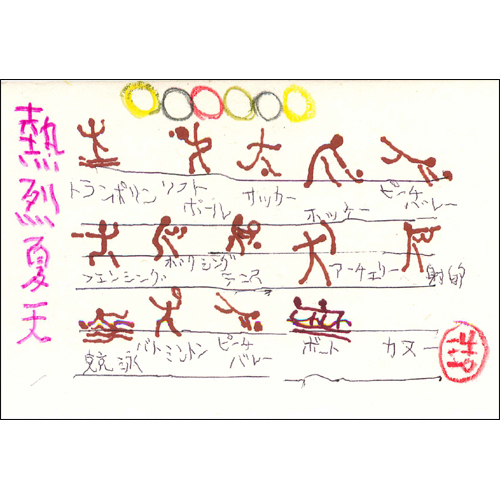 熱烈夏天
トランポリン ソフトボール サッカー ホッケー ビーチバレー
フェンシング ボクシング テニス アーチェリー 射的
競泳 バトミントン ビーチバレー ボート カヌー